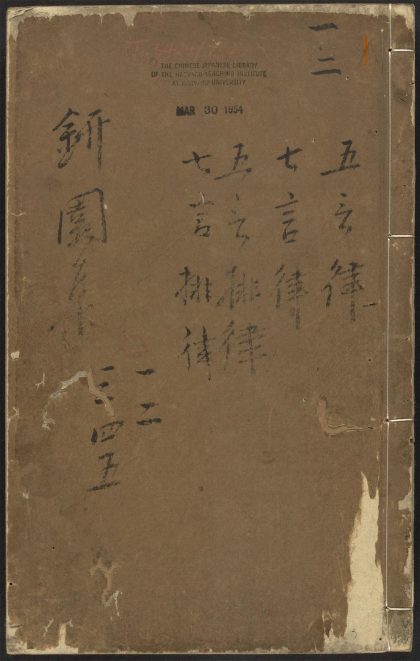 THE CHINESE JAPANESE LIBRARY
OF THE HARVARD-YENCHING INSTITUTE
AT HARVARD UNIVERSITY
MAR 30 1954
一二
五言律
七言律
五言排律
七言排律
園
一二
三四五